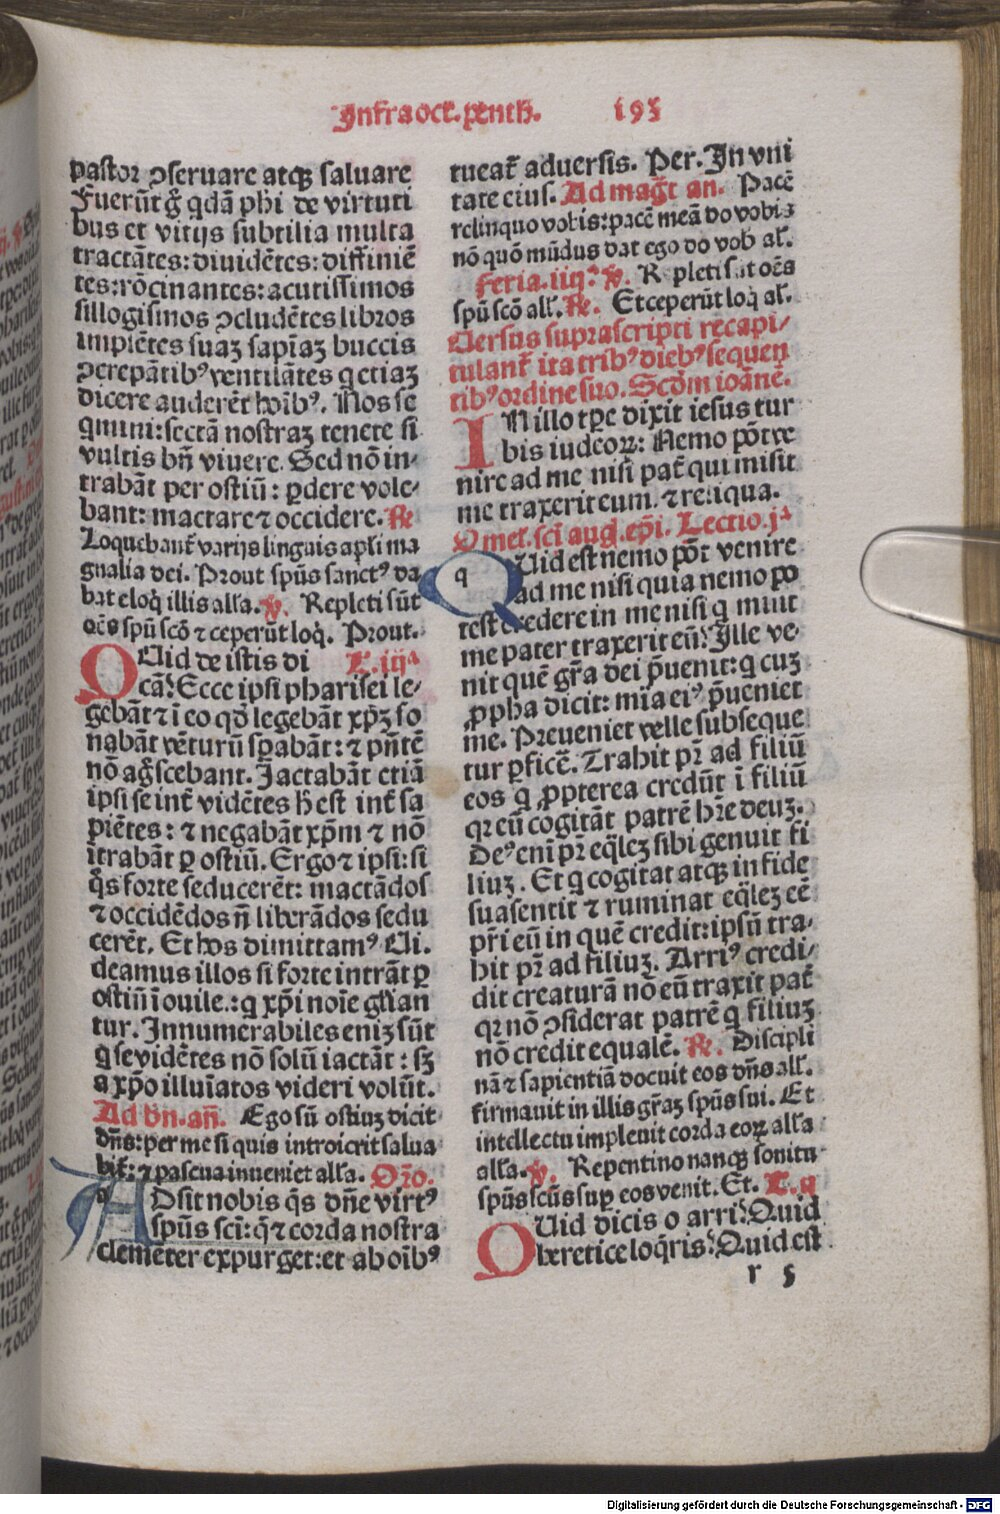 Infra oct̄. penth. 195
pastor ꝯseruare atqꝫ saluare
Fuerūt g̊ qdā phi de virtuti
bus et vitijs subtilia multa
tractātes: diuidētes: diffiniē
tes: rōcinantes: acutissimos
sillogismos ꝯcludētes libros
implētes suaꝫ sapīaꝫ buccis
ꝯcrepātibꝰ ventilātes q etiaꝫ
dicere auderēt hoībꝰ. Nos se
qmini: sectā nostraꝫ tenete si
vultis bn̄ viuere. Sed nō in-
trabāt per ostiū: ꝑdere vole-
bant: mactare ⁊ occidere. ℟.
Loquebant̄ varijs linguis apl̄i ma
gnalia dei. Prout spūs sanctꝰ da
bat eloq̄ illis all̄a. ℣. Repleti sūt
oēs spū scō ⁊ ceperūt loq̄. Prout.
QUid de istis di L. iijª
cā? Ecce ipsi pharisei le-
gebāt ⁊ ī eo qd̄ legebāt xp̄ꝫ so
nabāt vēturū sꝑabāt: ⁊ pn̄tē
nō ag̊scebant. Jactabāt etiā
ipsi se int̄ vidētes h̄ est int̄ sa
piētes: ⁊ negabāt xp̄m ⁊ nō
ītrabāt ꝑ ostiū. Ergo ⁊ ipsi: si
q̄s forte seducerēt: mactādos
⁊ occidēdos n̄ liberādos sedu
cerēt. Et hos dimittamꝰ Ui.
deamus illos si forte intrāt ꝑ
ostiū ī ouile.: q xp̄i noīe gl̄ian
tur. Innumerabiles eniꝫ sūt
q se vidētes nō solū iactāt: sꝫ
a xp̄o illuīatos videri volūt.
Ad bn̄. an̄. Ego sū ostiuꝫ dicit
dn̄s: per me si quis introierit salua
bit̄: ⁊ pascua inueniet all̄a. Or̄o.
ADsit nobis q̄s dn̄e virtꝰ
spūs sci: q̄ ⁊ corda nostra
clemēter expurget: et ab oībꝰ
tueat̄ aduersis. Per. In vni
tate eius. Ad maḡt an. Pacē
relinquo vobis: pacē meā do vobis
nō quō mūdus dat ego do vob al̄.
Feria. iiij. ℣. Repleti sūt oēs
spū scō all̄. ℟. Et ceperūt loq̄ al̄.
Uersus suprascripti recapi-
tulant̄ ita tribꝰ diebꝰ sequen
tibꝰ ordine suo. Scd̄m ioānē.
IN illo tꝑe dixit iesus tur
bis iudeoꝝ: Nemo pōt ve
nire ad me nisi pat̄ qui misit
me traxerit eum. ⁊ reliqua.
Omel. sci aug. ep̄i. Lectio. jª
QUid est nemo pōt venire
ad me nisi quia nemo po
test credere in me nisi q misit
me pater traxerit eū? Ille ve-
nit quē gr̄a dei p̄uenit: q cuꝫ
ꝓpha dicit: mīa eiꝰ p̄ueniet
me. Preueniet velle subseque
tur ꝑficē. Trahit pr̄ ad filiū
eos q ꝓpterea credūt ī filiū
qꝛ eū cogitāt patrē hr̄e deuꝫ.
Deꝰ eni pr̄ eq̄leꝫ sibi genuit fi
liuꝫ. Et q cogitat atqꝫ in fide
sua sentit ⁊ ruminat eq̄leꝫ eē
pr̄i eū in quē credit: ipsū tra-
hit pr̄ ad filiuꝫ. Arriꝰ credi-
dit creaturā nō eū traxit pat̄
qꝛ nō ꝯsiderat patrē q filiuꝫ
nō credit equalē. ℟. Discipli
nā ⁊ sapientiā docuit eos dn̄s all̄.
firmauit in illis gr̄aꝫ spūs sui. Et
intellectu impleuit corda eoꝝ all̄a
all̄a. ℣. Repentino nanqꝫ sonitu
spūs scūs suꝑ eos venit. Et. L. ij
QUid dicis o arri? Quid
heretice loq̄ris? Quid est
r 5
Digitalisierung gefördert durch die Deutsche Forschungsgemeinschaft - DFG